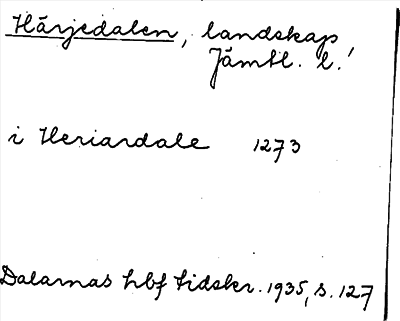 Härjedalen, landskap
Jämtl. l.
i Heriardale 1273
Dalarnas hbf tidskr. 1935, s. 127